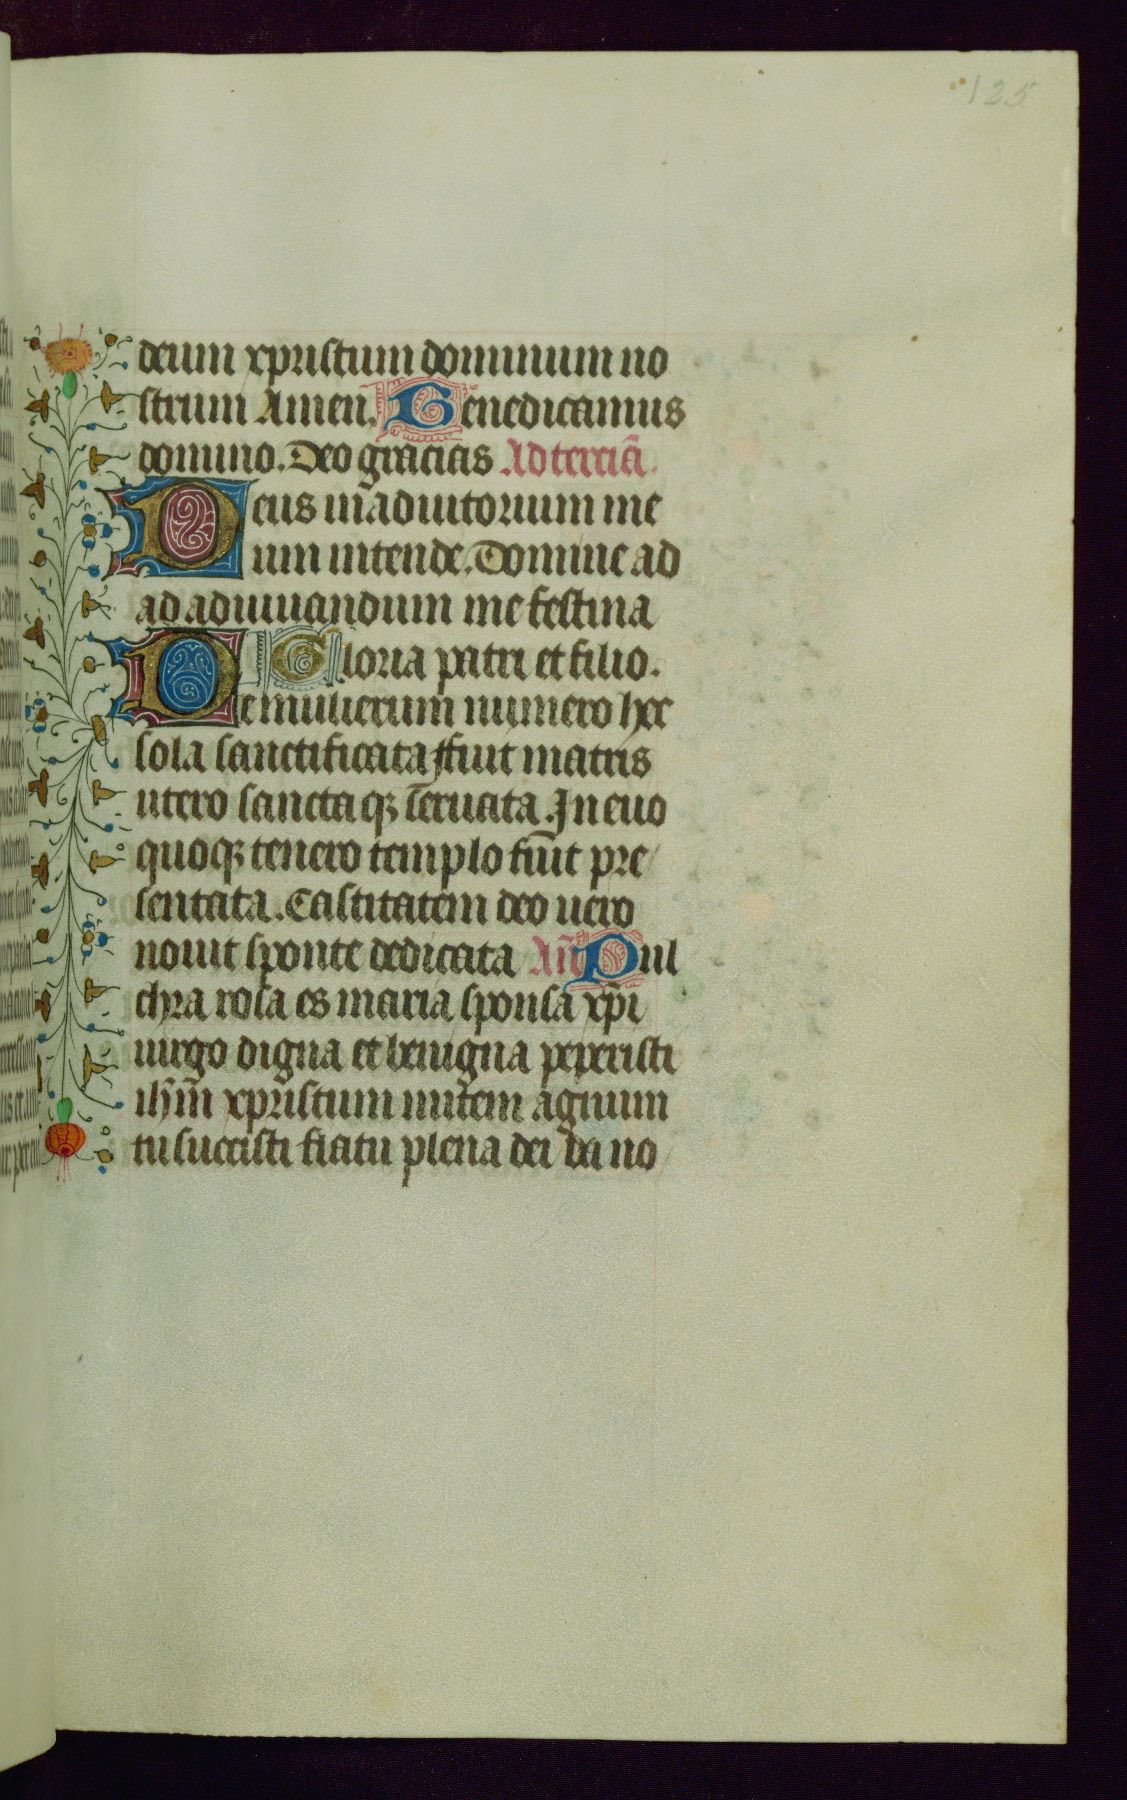 125
deum xpristum dominum no
strum Amen. Benedicamus
domino. Deo gracias Ad terciā.
Deus in adiutorium me
um intende. Domine ad
ad adiuuandum me festina
Gloria patri et filio.
De mulierum numero hec
sola sanctificata ffiut matris
utero sancta qꝫ seruata. In euo
quoqꝫ tenero templo fuit pre
sentata. Castitatem deo uero
nouit sponte dedicata Añ Pul
chra rosa es maria sponsa xp̄i
uirgo digna et benigna peperisti
ih̄m̄ xpristum mitem agnum
tu succisti fiatu plena dei da no